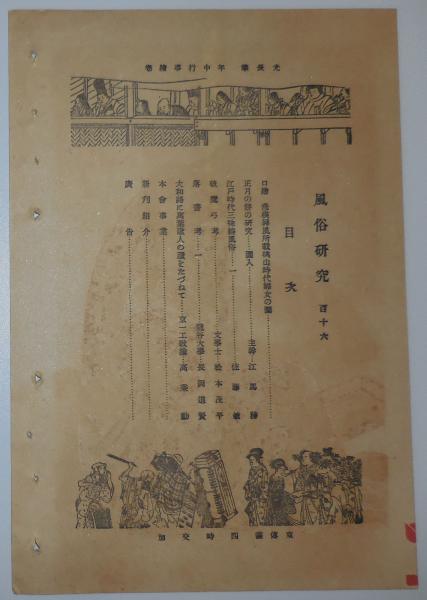 光長筆 年中行事繪卷
風俗研究 百十六
目次
口繪 屏風所載桃山時代婦女の圖
正月の餅の研究 圖入 主幹 江馬務
江戸時代三 風俗 一 佐藤
破魔弓考 文學士 松本茂平
落書考 一 龍谷大學 長岡遺賢
大和路に萬葉歌人の蹟をたづねて 京一工教諭 高乘勳
本會事業
新刊紹介
廣告
京傳畵 四時交加